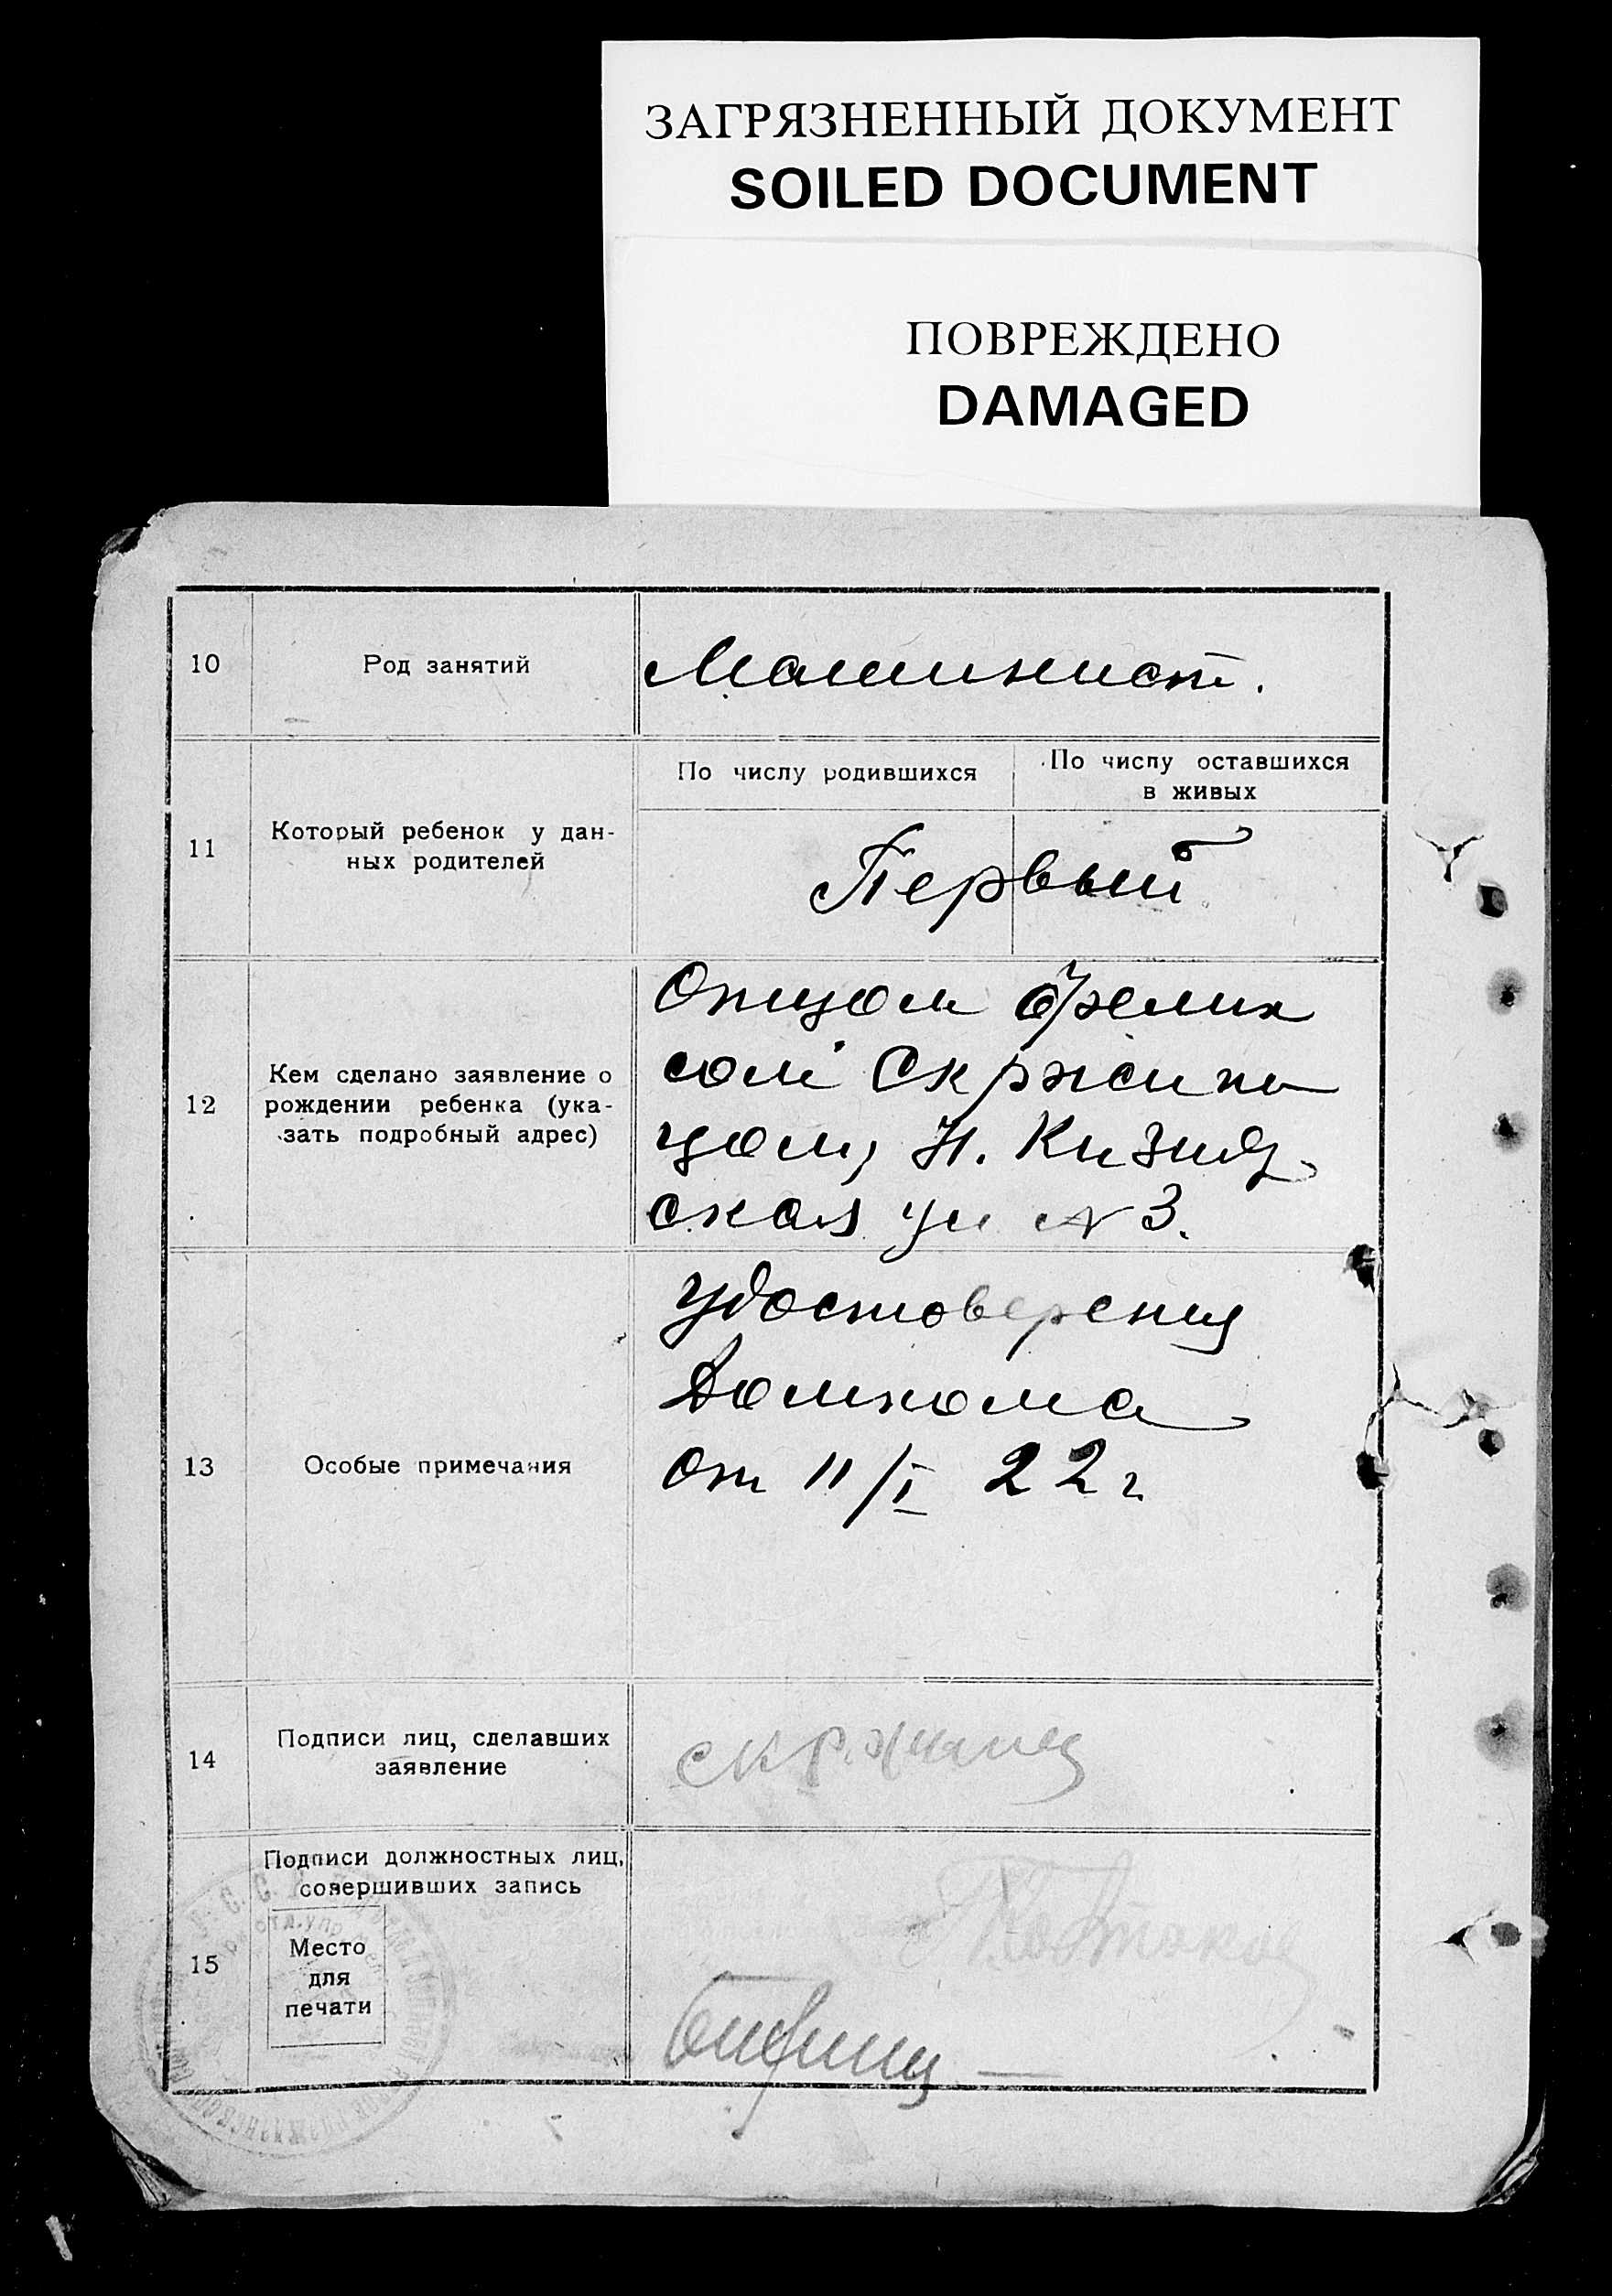 ЗАГРЯЗНЕННЫЙ ДОКУМЕНТ
SOILED DOCUMENT
ПОВРЕЖДЕНО
DAMAGED
10
Род занятий
Машинист.
11
Который ребенок у дан-
ных родителей
По числу родившихся
По числу оставшихся
в живых
Первый
12
Кем сделано заявление о
рождении ребенка (ука-
зать подробный адрес)
Отцом Фелик
сом Скржипи
цом, Н.
ская ул № 3.
13
Особые примечания
Удостоверения
Домкома
от 11/I 22 г.
14
Подписи лиц, сделавших
заявление
15
Подписи должностных лиц,
совершивших запись
Место
для
печати